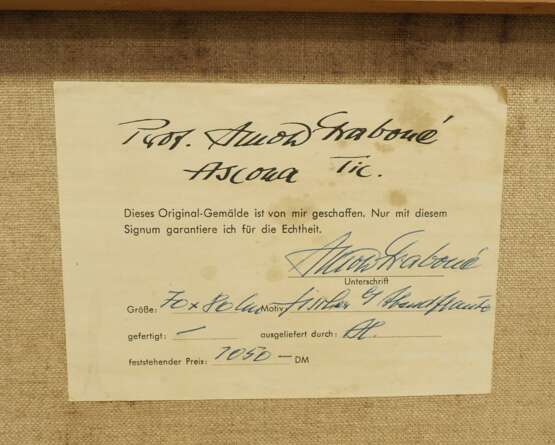 Prof. Arnold Graboné
Ascona Tic.
Dieses Original-Gemälde ist von mir geschaffen. Nur mit diesem
Signum garantiere ich für die Echtheit.
Arnold Graboné
Unterschrift
Größe: 70 x 80 cm Motiv: Fischer
gefertigt: — ausgeliefert durch:
feststehender Preis: 1050 — DM